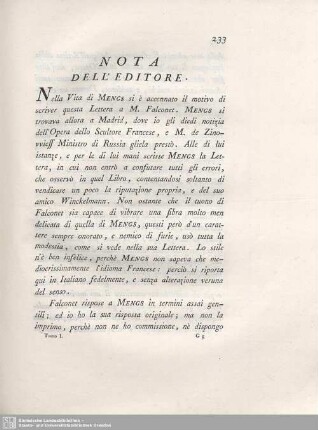 233
NOTA
DELL'EDITORE.
Nella Vita di MENGS si è accennato il motivo di
scriver questa Lettera a M. Falconet. MENGS si
trovava allora a Madrid, dove io gli diedi notizia
dell'Opera dello Scultore Francese, e M. de Zino-
vvieff Ministro di Russia gliela prestò. Alle di lui
istanze, e per le di lui mani scrisse MENGS la Let-
tera, in cui non entrò a confutare tutti gli errori,
che osservò in quel Libro, contentandosi soltanto di
vendicare un poco la riputazione propria, e del suo
amico Winckelmann. Non ostante che il tuono di
Falconet sia capace di vibrare una fibra molto men
delicata di quella di MENGS, questi però d'un carat-
tere sempre onorato, e nemico di furie, usò tutta
la modestia, come si vede nella sua Lettera. Lo stile
n'è ben infelice, perchè MENGS non sapeva che me-
diocrissimamente l'idioma Francese: perciò si riporta
qui in Italiano fedelmente, e senza alterazione veruna
del senso.
Falconet rispose a MENGS in termini assai gen-
tili; ed io ho la sua risposta originale; ma non la
imprimo, perchè non ne ho commissione, nè dispongo
Tomo I. G 5
Sächsische Landesbibliothek -
Staats- und Universitätsbibliothek Dresden